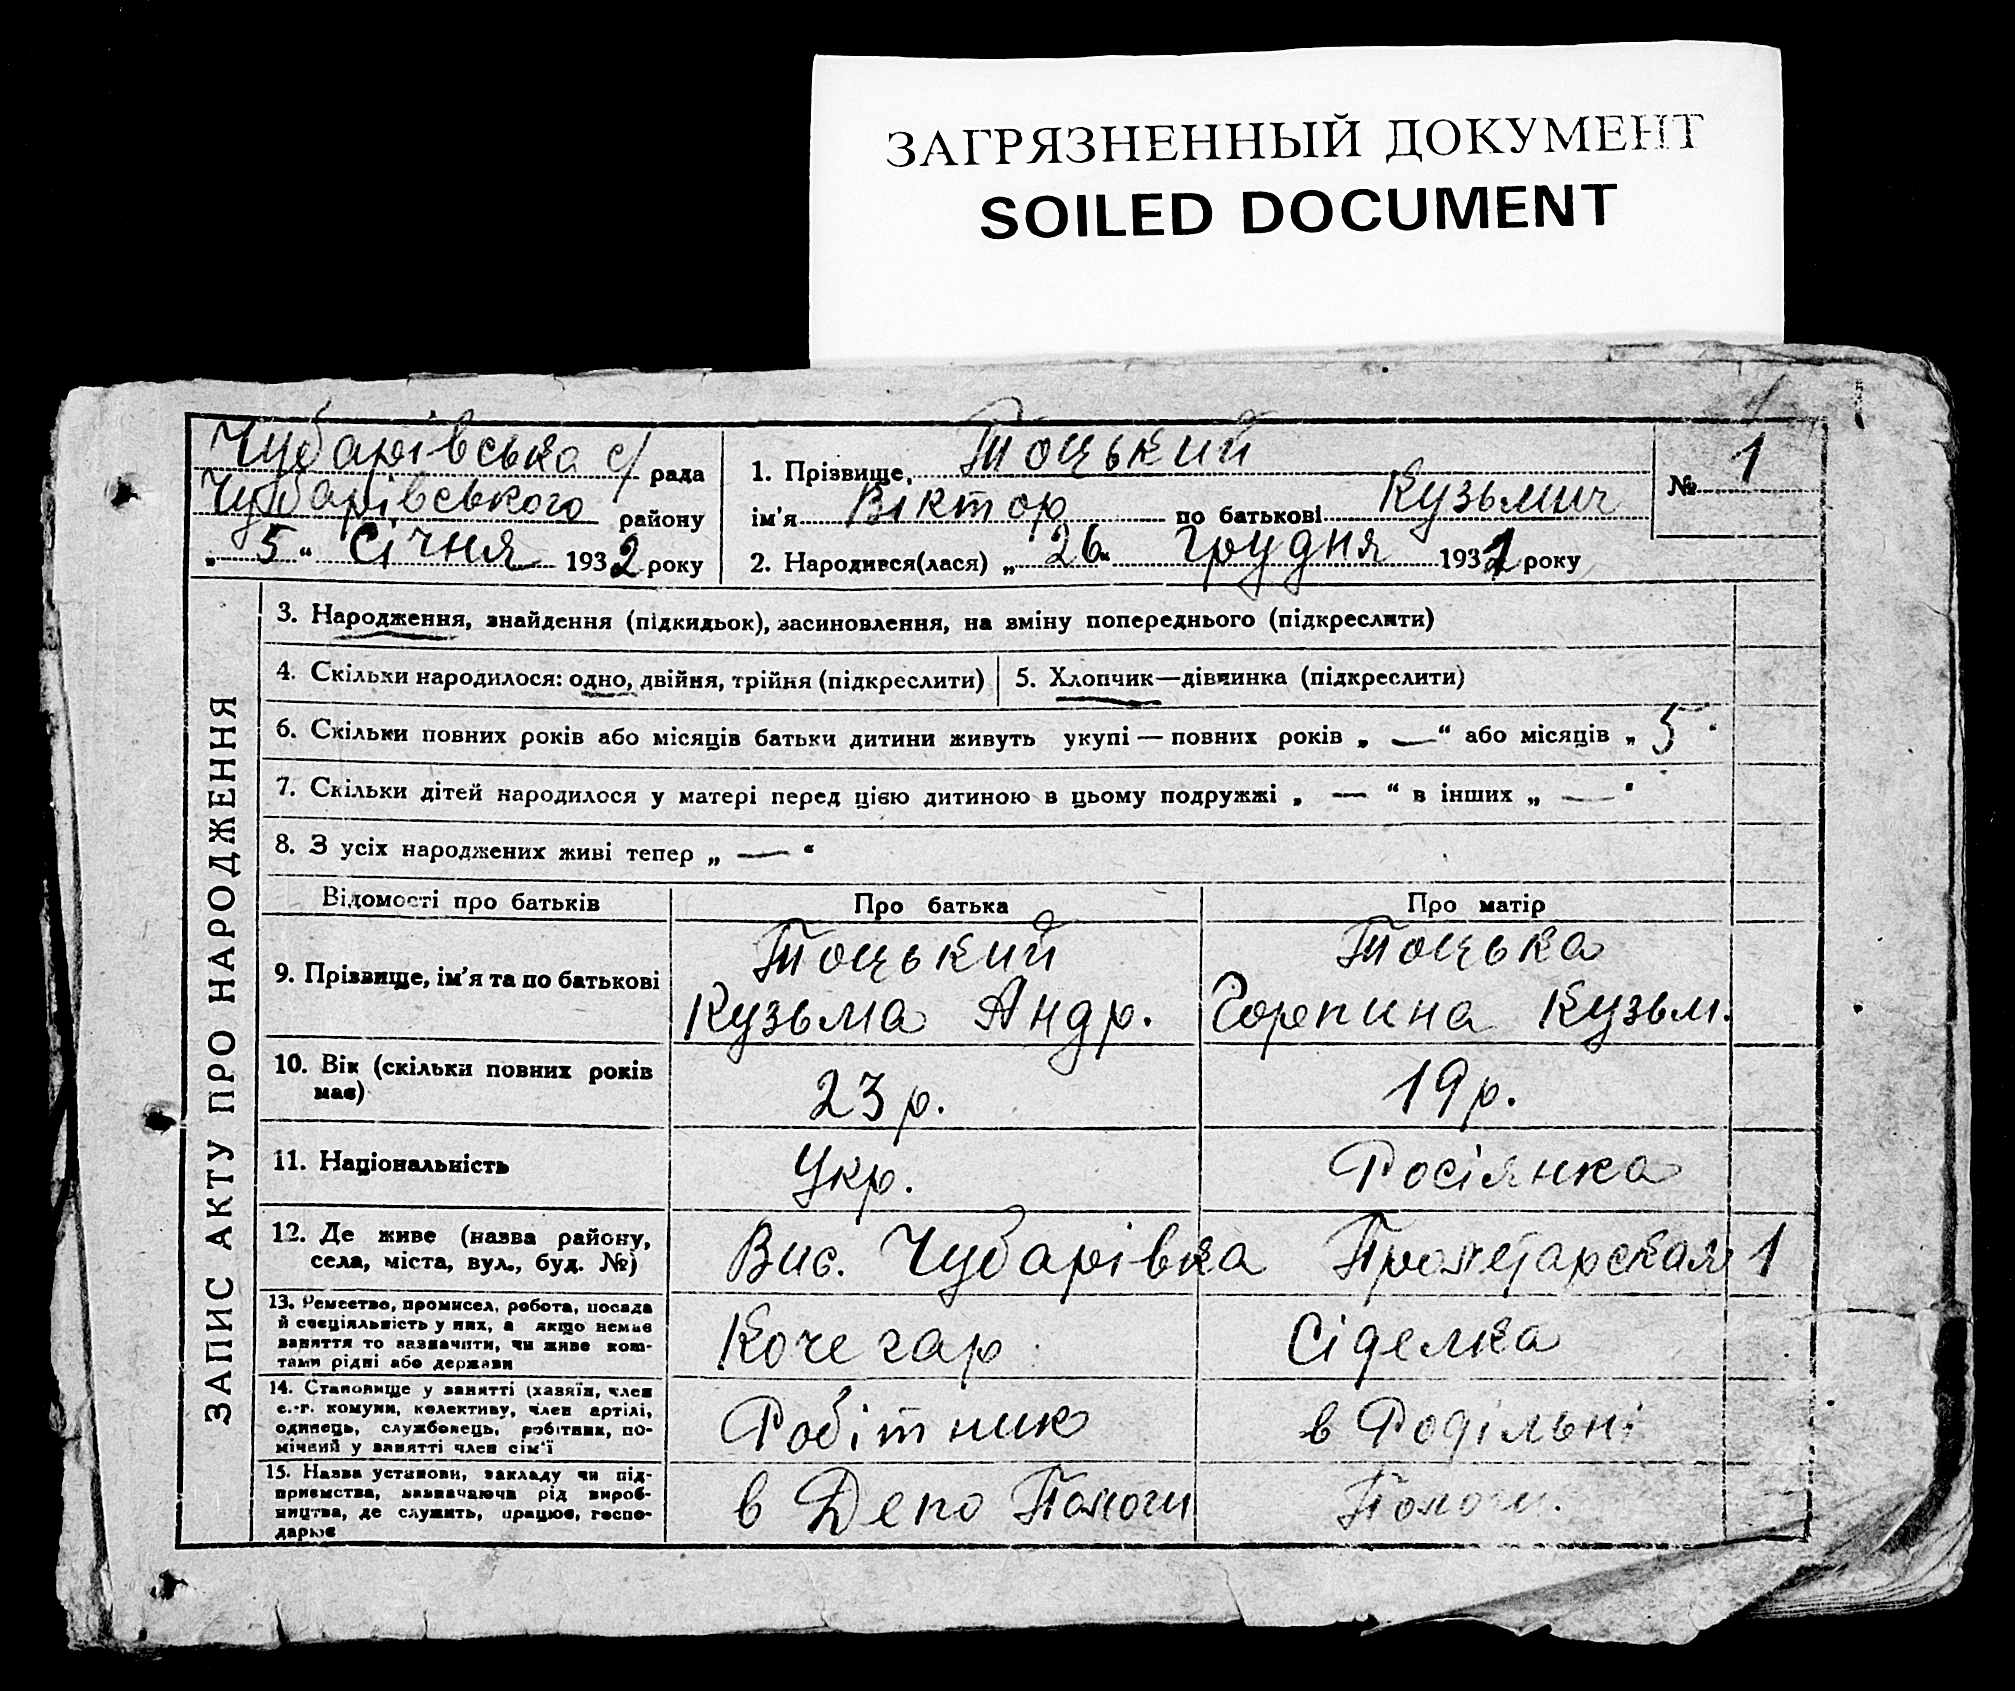 ЗАГРЯЗНЕННЫЙ ДОКУМЕНТ
SOILED DOCUMENT
1
Чубарівська с/рада
Чубарівського району
„ 5 “ Січня 1932 року
1. Прізвище, Тоцький
ім'я Віктор по батькові Кузьмич
2. Народився(лася) „ 26 “ грудня 1931 року
№ 1
ЗАПИС АКТУ ПРО НАРОДЖЕННЯ
3. Народження, знайдення (підкидьок), засиновлення, на зміну попереднього (підкреслити)
4. Скільки народилося: одно, двійня, трійня (підкреслити)
5. Хлопчик—дівчинка (підкреслити)
6. Скільки повних років або місяців батьки дитини живуть укупі — повних років „ — “ або місяців „ 5 “
7. Скільки дітей народилося у матері перед цією дитиною в цьому подружжі „ — “ в інших „ — “
8. З усіх народжених живі тепер „ — “
Відомості про батьків
Про батька
Про матір
9. Прізвище, ім'я та по батькові
Тоцький
Кузьма Андр.
Тоцька
Горпина Кузьм.
10. Вік (скільки повних років
має)
23 р.
19 р.
11. Національність
Укр.
Росіянка
12. Де живе (назва району,
села, міста, вул., буд. №)
Вис. Чубарівка Пролетарская 1
13. Ремество, промисел, робота, посада
й спеціяльність у них, а якщо немає
заняття то зазначити, чи живе кош-
тами рідні або держави
Кочегар
Сіделка
14. Становище у занятті (хазяїн, член
с.-г. комуни, колективу, член артілі,
одинець, службовець, робітник, по-
мічний у занятті член сім'ї
Робітник
в Родільні
15. Назва установи, закладу чи під-
приємства, зазначаючи рід вироб-
ництва, де служить, працює, госпо-
дарює
в Депо Пологи
Пологи.